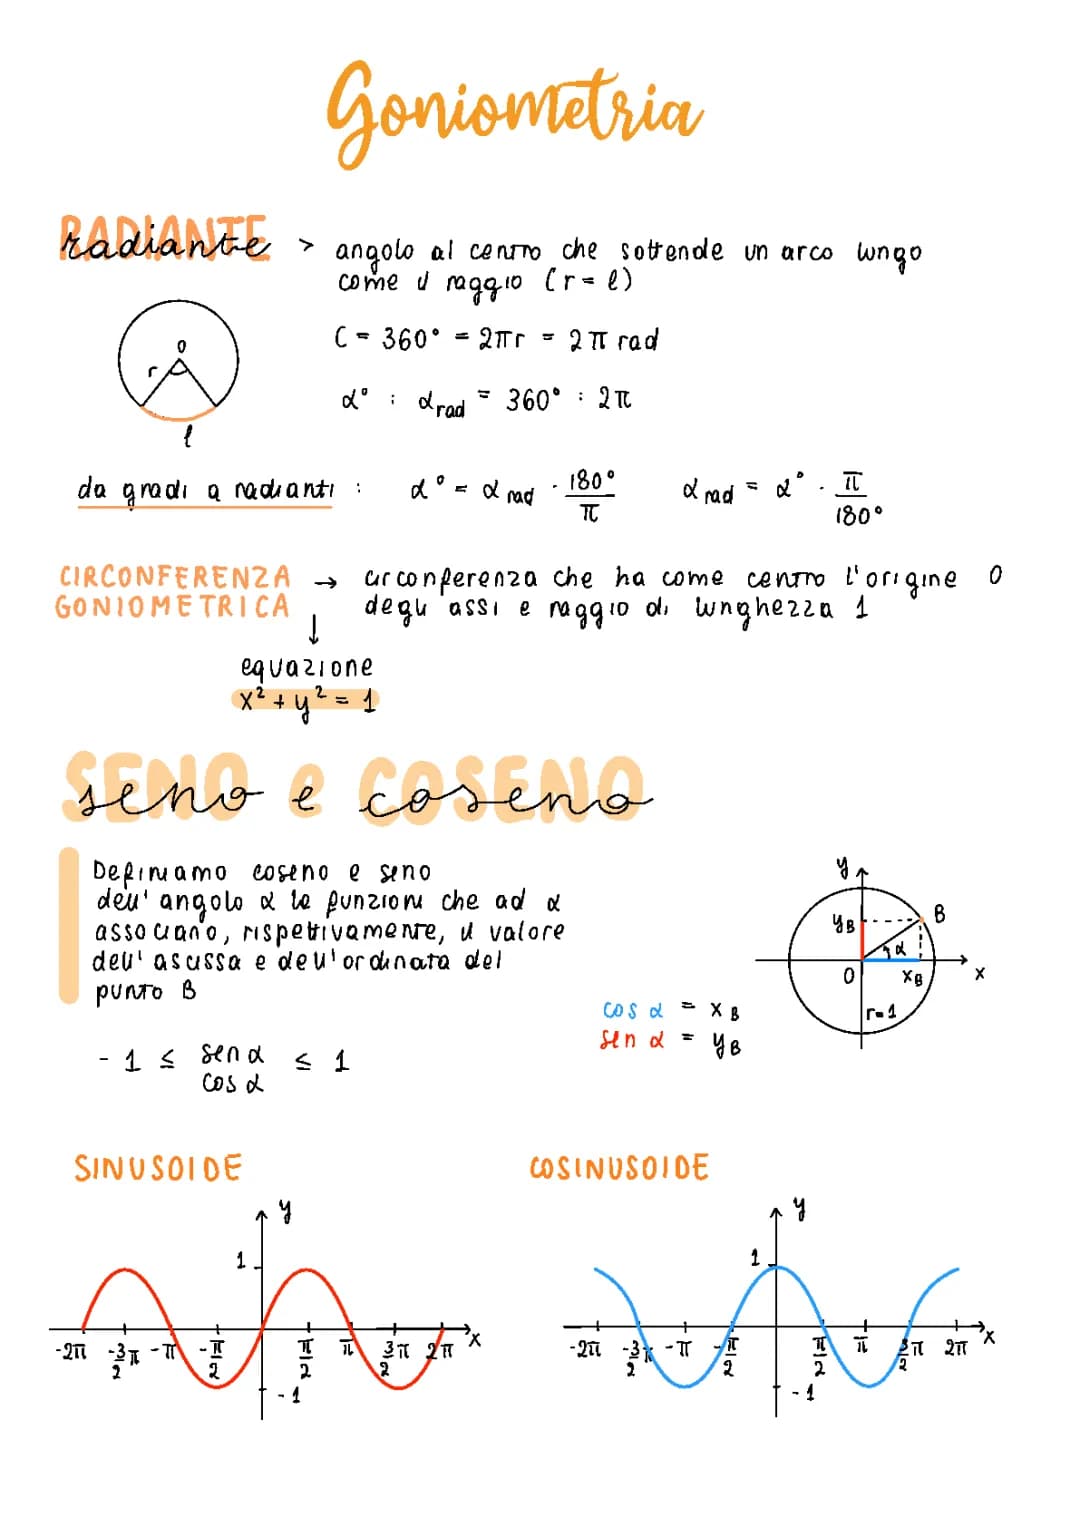 Goniometria
RADIANTE
radiante > angolo al centro che sottende un arco lungo
come il raggio (r = l)
C = 360° = 2πr = 2π rad
α° : α rad = 360° : 2π
O
r
l
da gradi a radianti : α° = α rad · 180°/π α rad = α° · π/180°
CIRCONFERENZA GONIOMETRICA → circonferenza che ha come centro l'origine O
degli assi e raggio di lunghezza 1
↓
equazione
x² + y² = 1
SENO e COSENO
seno e coseno
Definiamo coseno e seno
dell'angolo α le funzioni che ad α
associano, rispettivamente, il valore
dell'ascissa e dell'ordinata del
punto B
y
yB
B
α
O
xB
x
r=1
cos α = xB
sen α = yB
-1 ≤ sen α ≤ 1
cos α
SINUSOIDE
y
1
-2π -3/2π -π -π/2 π/2 π 3/2π 2π x
-1
COSINUSOIDE
y
1
-2π -3/2π -π -π/2 π/2 π 3/2π 2π x
-1